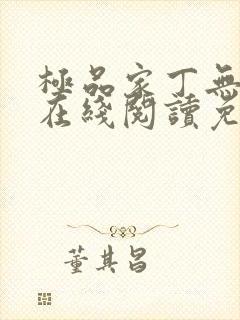 極品家丁無
在綫閱讀免
董其昌